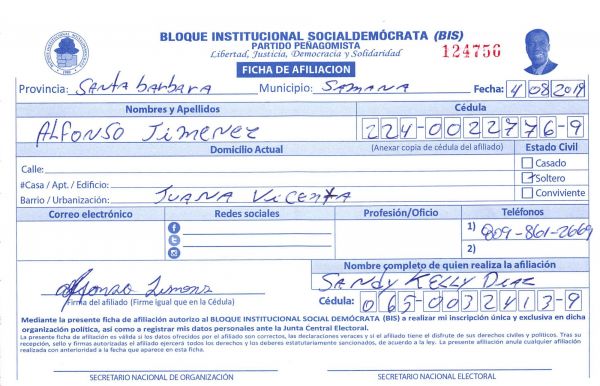 BLOQUE INSTITUCIONAL SOCIALDEMÓCRATA (BIS)
PARTIDO PEÑAGOMISTA
Libertad, Justicia, Democracia y Solidaridad
124756
FICHA DE AFILIACION
Provincia: Santa barbara Municipio: SAMANA Fecha: 4/08/2019
Nombres y Apellidos Cédula
ALFONSO Jimenez 224-0022776-9
Domicilio Actual (Anexar copia de cédula del afiliado) Estado Civil
Calle: Casado
#Casa / Apt. / Edificio: Soltero
Barrio / Urbanización: JUANA VicenTA Conviviente
Correo electrónico Redes sociales Profesión/Oficio Teléfonos
1) 809-861-2669
2)
Nombre completo de quien realiza la afiliación
SANDY KELLY DIAZ
Firma del afiliado (Firme igual que en la Cédula) Cédula: 065-0032413-9
Mediante la presente ficha de afiliación autorizo al BLOQUE INSTITUCIONAL SOCIAL DEMÓCRATA (BIS) a realizar mi inscripción única y exclusiva en dicha
organización política, así como a registrar mis datos personales ante la Junta Central Electoral.
La presente ficha de afiliación es válida si los datos ofrecidos por el afiliado son correctos, las declaraciones veraces y si el afiliado tiene el disfrute de sus derechos civiles y políticos. Tras su
recepción, sello y firmas autorizadas el afiliado ejercerá todos los derechos y los deberes estatutariamente sancionados, de acuerdo a la ley. La presente afiliación anula cualquier afiliación
realizada con anterioridad a la fecha que aparece en esta ficha.
SECRETARIO NACIONAL DE ORGANIZACIÓN SECRETARIO NACIONAL ELECTORAL